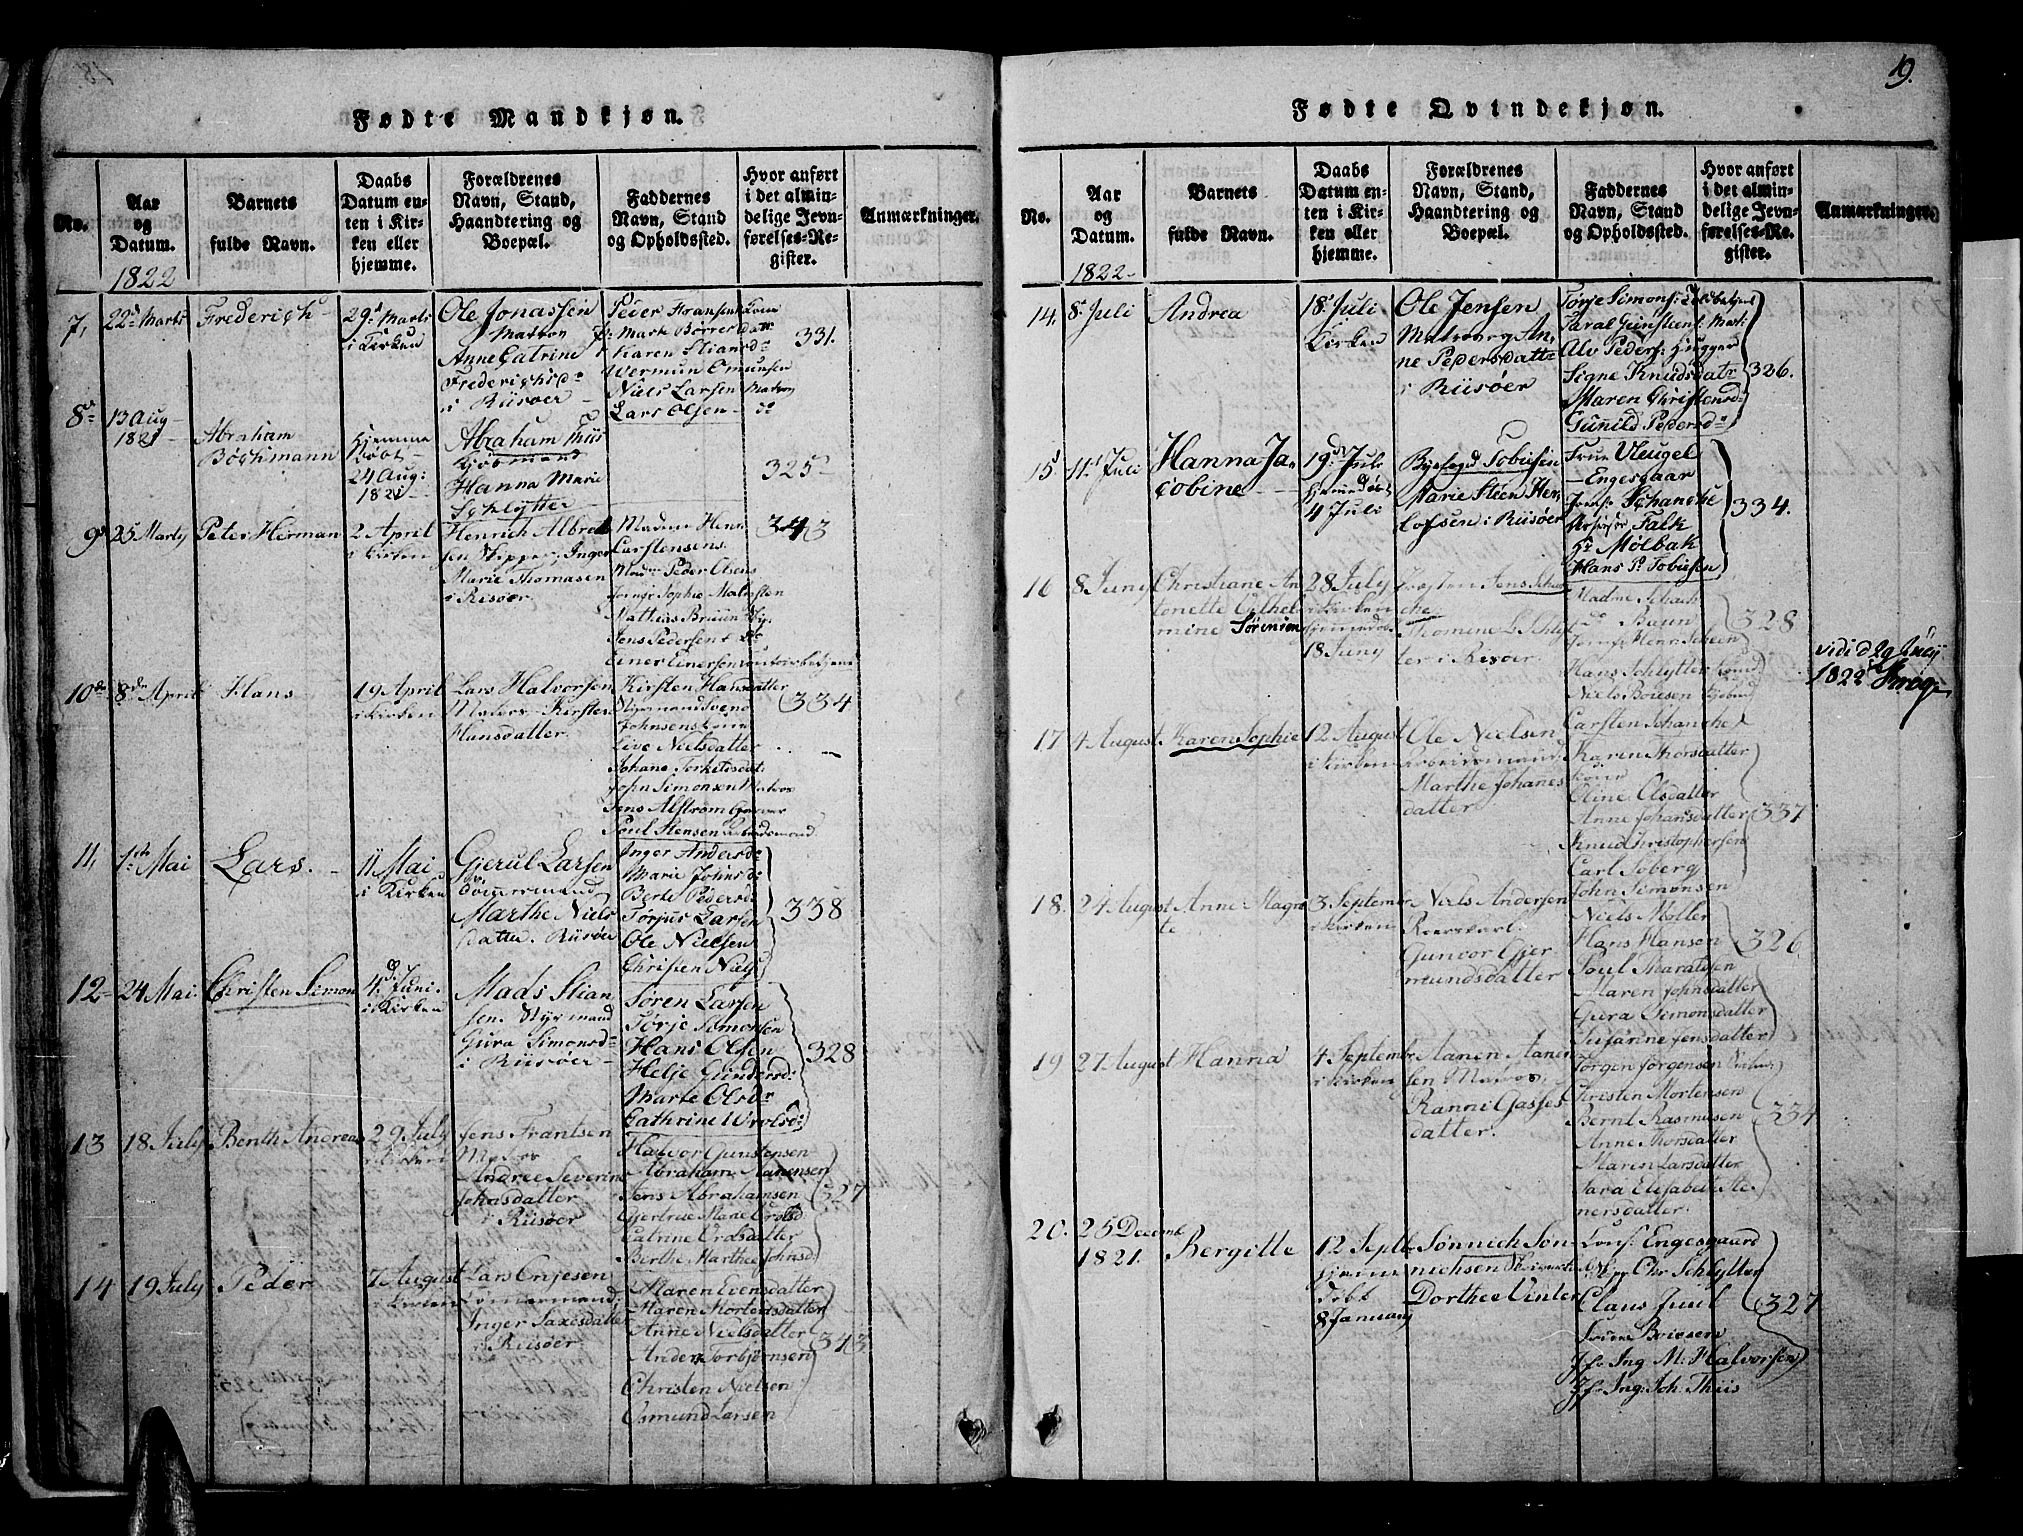 Fødte Mandkjøn.
No.
Aar
og
Datum.
1822
Barnets
fulde Navn.
Daabs
Datum en-
ten i Kir-
ken eller
hjemme.
Forældrenes
Navn, Stand,
Haandtering og
Boepæl.
Faddernes
Navn, Stand
og Opholdssted.
Hvor anført
i det almin-
delige Jevn-
førelses-Re-
gister.
Anmærkninger.
7,
22d Marts
Frederich
29d Marts
i Kirken
Ole Jonassen
Matros
Anne Catrine
Frederichsd
i Riisøer
Peder Fransens Kone
Karen Stiansd
Wermun Omunsen
Niels Larsen Matros
Lars Olsen
331.
8
13 Aug
1821
Abraham
Bochmann
Hjemme
døbt
24 Aug:
1821
Abraham Fiis
Kjøbmand
Hanna Marie
Schlytter
325
9
25 Marts
Peter Herman
2 April
i Kirken
Henrich Albret
sen Skipper, Inger
Marie Thomasen
i Risøer
Madme Hens
Carstensens
Mad Peder Olsens
Jomfr Sophie Malmsten
Mathias Bruun
Jens Pedersen
Einer Einersen
343
10de
8de April
Hans
19 April
i Kirken
Lars Halvorsen
Matros. Kirsten
Hansdatter.
Kirsten Hansdatter
Styrmand Svend
Johnsens Kone
Live Nielsdatter
Johane Terkelsdat:
John Simonsen Matros
Jens Alstrøm Garver
Poul Stensen arbeidsmand.
334
11,
1ste Mai
Lars.
11 Mai
i Kirken
Gjerul Larsen
Tømmermand
Marthe Niels
datter. Riisøer
Inger Andersd
Marie Johnsd:
Berte Pedersd
Torjus Larsen
Ole Nielsen
Christen Niels
338
12
24 Mai.
Christen Simon
4d Juni.
i Kirken
Mads Stian
sen. Styrmand
Gura Simonsd
i Riisøer
Søren Larsen
Tørje Simonsen
Hans Olsen
Helje Gundersd:
Marte Olsd
Cathrine Wrolsd:
328
13
18 July
Benth Andreas
29 July
i Kirken
Jens Frantsen
Matros
Andree Severine
Johnsdatter
i Riisøer
Halvor Gunstensen
Abraham Aanensen
Jens Abrahamsen
Gjertrue Marie Wrolsd
Catrine Vrolsdatter
Berthe Marthe Johnsd:
327
14
19 July
Peder
7 August
i Kirken
Lars Onjesen
Tømermand.
Inger Saxesdatter
i Riisøer
Maren Evensdatter
Maren Mortensdatter
Anne Nielsdatter
Anders Torbjørnsen
Christen Nielsen
Osmund Larsen
343
19.
Fødte Qvindekjøn.
No.
Aar
og
Datum.
1822
Barnets
fulde Navn.
Daabs
Datum en-
ten i Kir-
ken eller
hjemme.
Forældrenes
Navn, Stand,
Haandtering og
Boepæl.
Faddernes
Navn, Stand
og Opholdssted.
Hvor anført
i det almin-
delige Jevn-
førelses-Re-
gister.
Anmærkninger.
14.
8d Juli
Andrea
18d Juli
Kirken
Ole Jensen
Matros og An
ne Pedersdatte
i Riisøer
Tørje Simons: Toldbetjent
Taral Gunstens: Mat:
Alv Peders: Hugger
Signe Knudsdat
Maren Christensd
Gunild Pedersd
326.
15
11d Juli
Hanna Ja
cobine
19d Juli
hjemmedøbt
4 Juli
Byefogd Tobiesen
Marie Steen Her
lofsen i Riisøer
Frue Uleugel
Engesgaar
Jomf: Schanche
Assesør Falk
Hr Mølbak
Hans P. Tobiesen
334.
16
8 Juny
Christiane An
tonette Vilhel
mine Sørensen
28 July
i Kirken
hjemmedøbt
18 Juny
Jens Schan
che
Thomine L. Schlyt
ter i Risøer
Madme Schach
Do Baun
Jomfr Henr. Steen
Hans Schlytter
Niels Boiesen
Carsten Schanche
328
vidi d 29 July
1822
Krog
17
4 August.
Karen Sophie
12 August
i Kirken
Ole Nielsen
Arbeidsmand
Marthe Johanes
datter
Karen Thorsdatter
Kone
Oline Olsdatter
Anne Johansdatter
Knud Christophersen
Carl Soberg
John Simonsen
337
18.
24 August
Anne Magre
te
3 Septembr
i Kirken
Niels Andersen
Roerskarl.
Gunvor Gjer
mundsdatter
Niels Møller
Hans Hansen
Poul Tharalsen
Maren Johnsdatter
Gura Simonsdatter
Susanne Jensdatter
326
19
27 August
Hanna
4 Septembr
i Kirken
Aanen Aanen
sen Matros,
Ranni Gasses
datter.
Jørgen Jørgensen
Christen Mortensen
Bernt Rasmusen
Anne Thorsdatter
Maren Larsdatter
Sara Elisabet Ste
nersdatter
334
20.
25 Decemb
1821.
Bergitte
12 Septb
hjeme
døbt
8 January
Sønnich Søn
nichsen
Dorthee Vinter
Cons: Engesgaard
Chr Schlytter
Claus Juul
Boiesen
Jfr Ing M: Halvorsen
Jfr Ing: Joh: Thiis
327